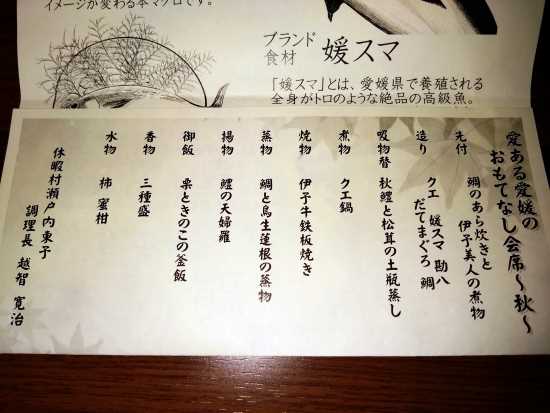 イメージが変わる本マグロです。
ブランド
食材
媛スマ
「媛スマ」とは、愛媛県で養殖される
全身がトロのような絶品の高級魚。
愛ある愛媛の
おもてなし会席〜秋〜
先付 鯛のあら炊きと
伊予美人の煮物
造り クエ 媛スマ 勘八
だてまぐろ 鯛
吸物替 秋鱧と松茸の土瓶蒸し
煮物 クエ鍋
焼物 伊予牛鉄板焼き
蒸物 鯛と烏生蓬根の蒸物
揚物 鱧の天婦羅
御飯 栗ときのこの釜飯
香物 三種盛
水物 柿 蜜柑
休暇村瀬戸内東予
調理長 越智 寛治